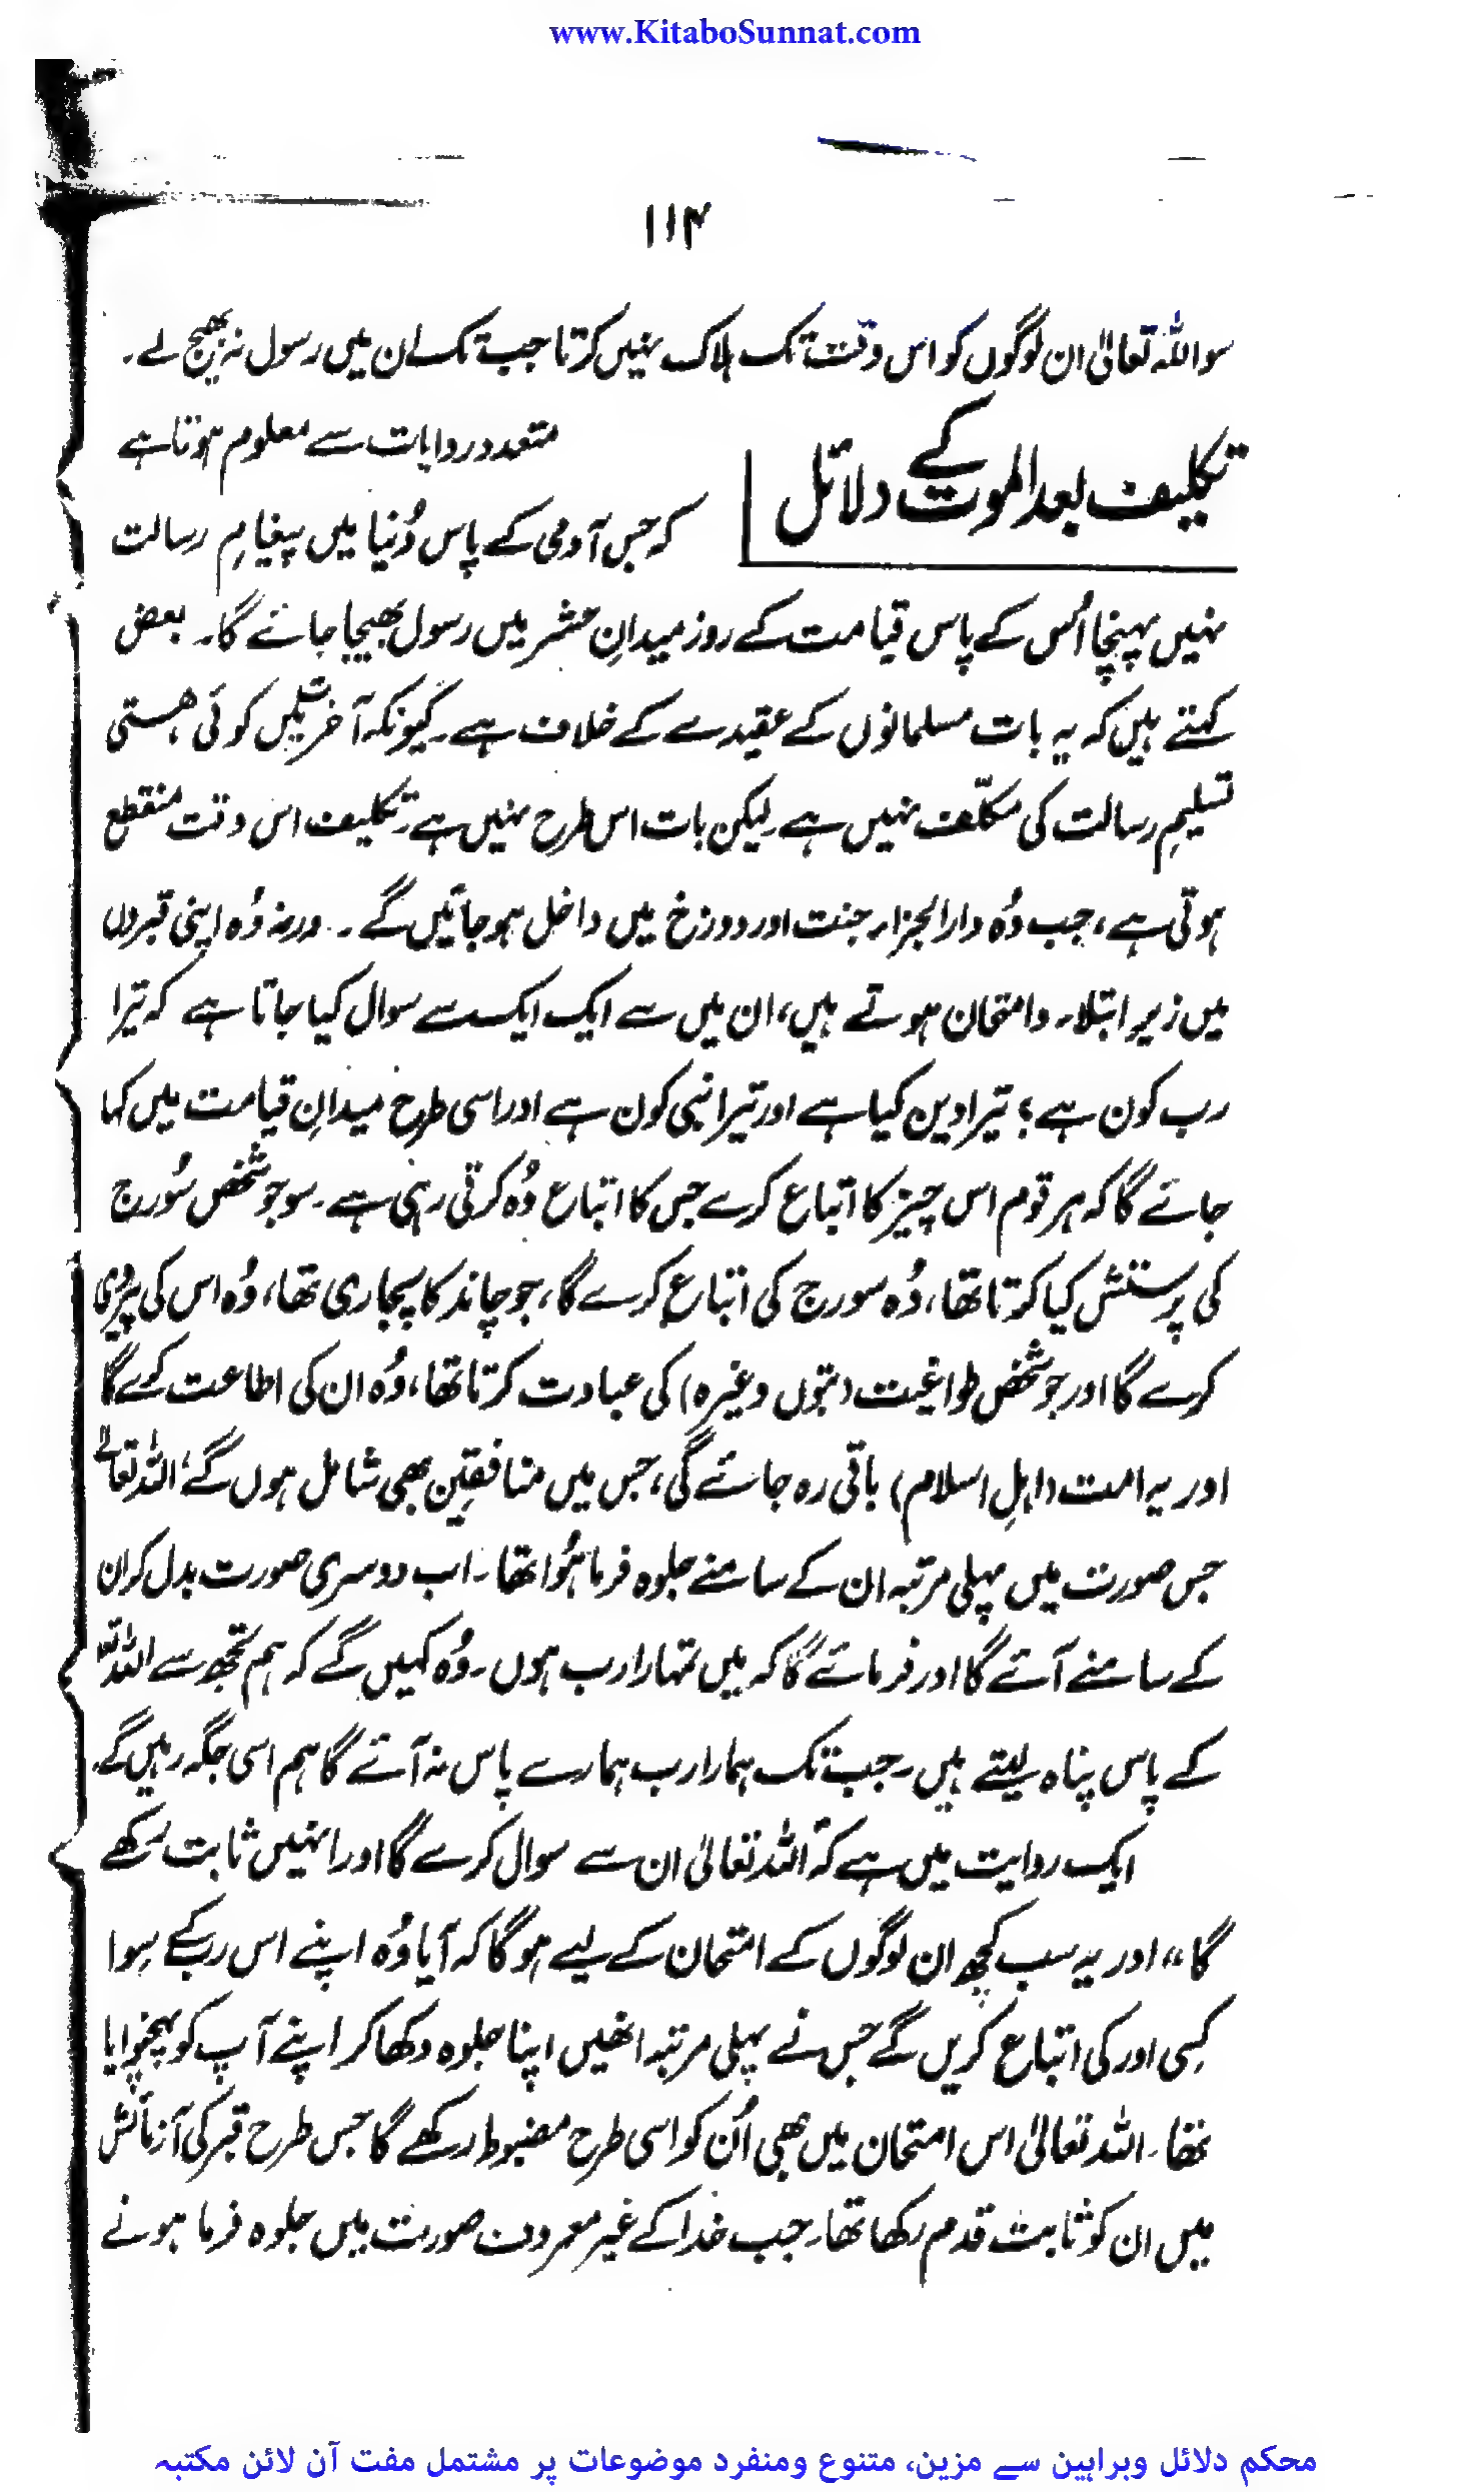 www.KitaboSunnat.com
۱۱۴
سو اللہ تعالیٰ ان لوگوں کو اس وقت تک ہلاک نہیں کرتا جب تک ان میں رسول نہ بھیج لے۔
تکلیف بعد الموت کے دلائل
متعدد روایات سے معلوم ہوتا ہے
کہ جس آدمی کے پاس دُنیا میں پیغامِ رسالت
نہیں پہنچا اُس کے پاس قیامت کے روز میدانِ حشر میں رسول بھیجا جائے گا۔ بعض
کہتے ہیں کہ یہ بات مسلمانوں کے عقیدے کے خلاف ہے۔ کیونکہ آخرت میں کوئی ہستی
تسلیمِ رسالت کی مکلّف نہیں ہے لیکن بات اس طرح نہیں ہے۔ تکلیف اس وقت منقطع
ہوتی ہے، جب وُہ دارالجزاء جنت اور دوزخ میں داخل ہو جائیں گے۔ ورنہ وُہ اپنی قبروں
میں زیرِ ابتلاء و امتحان ہوتے ہیں، ان میں سے ایک ایک سے سوال کیا جاتا ہے کہ تیرا
رب کون ہے؟ تیرا دین کیا ہے اور تیرا نبی کون ہے اور اسی طرح میدانِ قیامت میں کہا
جائے گا کہ ہر قوم اس چیز کا اتباع کرے جس کا اتباع وُہ کرتی رہی ہے۔ سو جو شخص سُورج
کی پرستش کیا کرتا تھا، وُہ سورج کی اتباع کرے گا، جو چاند کا پجاری تھا، وُہ اس کی پیروی
کرے گا اور جو شخص طواغیت (بتوں وغیرہ) کی عبادت کرتا تھا، وُہ ان کی اطاعت کرے گا
اور یہ امت (اہلِ اسلام) باقی رہ جائے گی، جس میں منافقین بھی شامل ہوں گے، اللہ تعالےٰ
جس صورت میں پہلی مرتبہ ان کے سامنے جلوہ فرما ہُوا تھا۔ اب دوسری صورت بدل کر ان
کے سامنے آئے گا اور فرمائے گا کہ میں تمہارا رب ہوں۔ وُہ کہیں گے کہ ہم تجھ سے اللہ تعالٰی
کے پاس پناہ لیتے ہیں۔ جب تک ہمارا رب ہمارے پاس نہ آئے گا ہم اسی جگہ رہیں گے۔
ایک روایت میں ہے کہ "اللہ تعالیٰ ان سے سوال کرے گا اور انہیں ثابت رکھے
گا" اور یہ سب کچھ ان لوگوں کے امتحان کے لیے ہو گا کہ آیا وُہ اپنے اس رب کے سِوا
کسی اور کی اتباع کریں گے جس نے پہلی مرتبہ انھیں اپنا جلوہ دکھا کر اپنے آپ کو پہچنوایا
تھا۔ اللہ تعالیٰ اس امتحان میں بھی اُن کو اسی طرح مضبوط رکھے گا جس طرح قبر کی آزمائش
میں ان کو ثابت قدم رکھا تھا۔ جب خدا کے غیر معروف صورت میں جلوہ فرما ہونے
محکم دلائل وبراہین سے مزین، متنوع ومنفرد موضوعات پر مشتمل مفت آن لائن مکتبہ